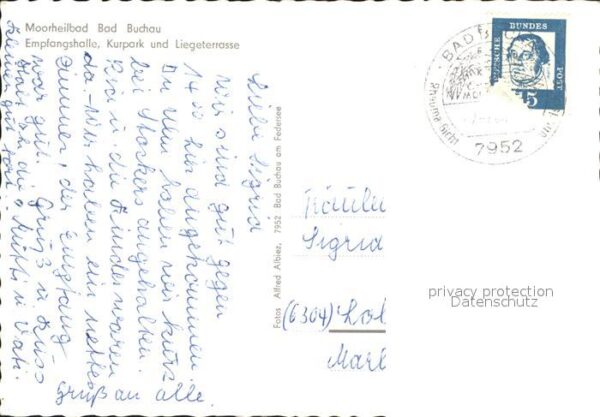 Moorheilbad Bad Buchau
Empfangshalle, Kurpark und Liegeterrasse
Liebe Sigrid
Wir sind gut gegen
14 00 hier angekommen
In Ulm haben wir kurz
bei Stockers angehalten.
Ria u. die Kinder waren
da. Wir haben ein nettes
Zimmer, der Empfang
war gut. Gruß u Kuss
Mutti u Vati
Gruß an alle.
Fotos Alfred Albiez, 7952 Bad Buchau am Federsee
BAD BUC
Rheuma Gicht
7952
DEUTSCHE
BUNDES
POST
15
Fräulei
Sigrid
(6304) Lol
Marb
privacy protection
Datenschutz